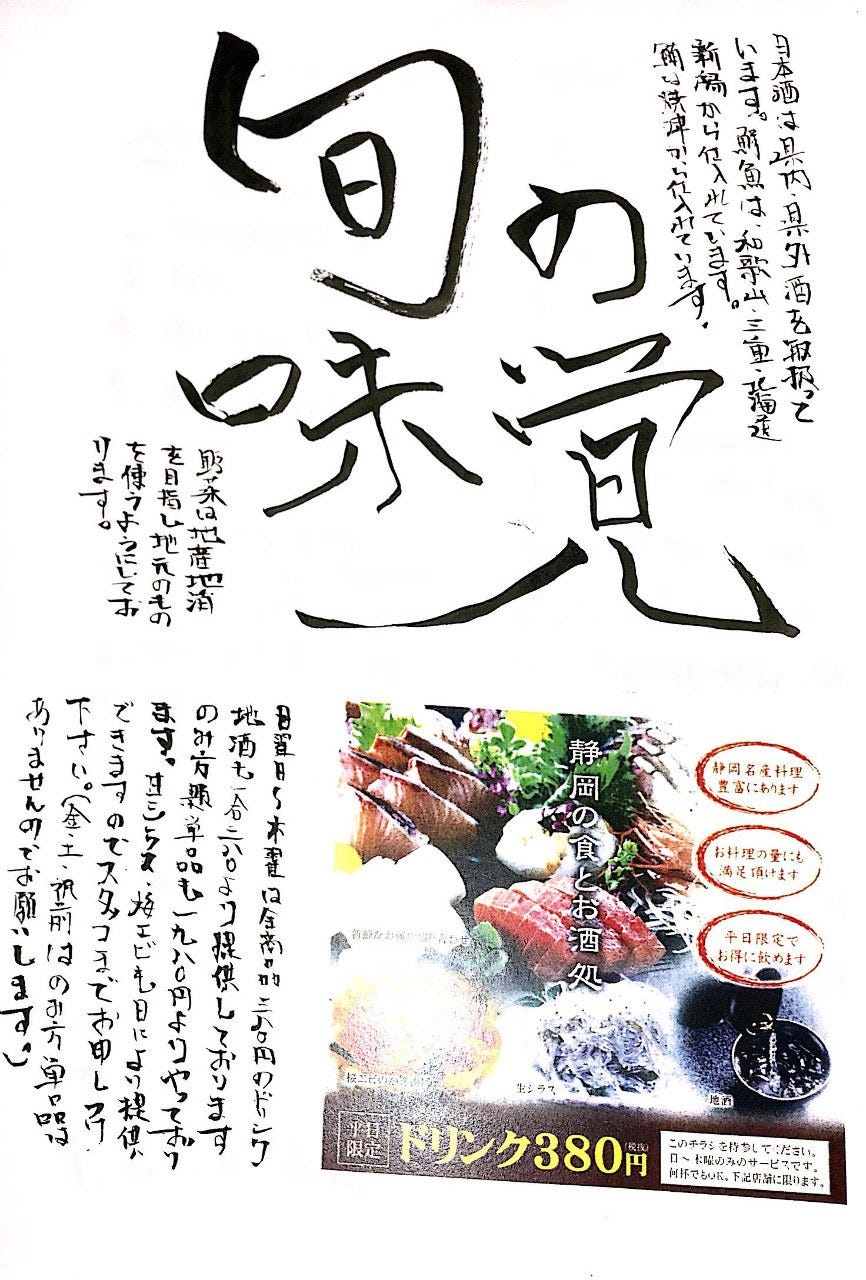 旬の
味覚
日本酒は県内・県外酒を取扱って
います。鮮魚は、和歌山・三重・北海道
新潟から仕入れています。
鮪は焼津から仕入れています。
野菜は地産地消
を目指し地元のもの
を使うようにしてお
ります。
日曜日〜木曜は全商品三八〇円のドリンク
地酒も一合三八〇より提供しております
のみ方類単品も一九八〇円よりやっており
ます。生シラス・桜エビも日により提供
できますのでスタッフまでお申しつけ
下さい。(金・土・祝前はのみ方単品は
ありませんのでお願いします。)
静岡の食とお酒処
静岡名産料理
豊富にあります
お料理の量にも
満足頂けます
平日限定で
お得に飲めます
生シラス
地酒
平日
限定
ドリンク380円
(税抜)
このチラシを持参してください。
日〜木曜のみのサービスです。
何杯でもOK。下記店舗に限ります。